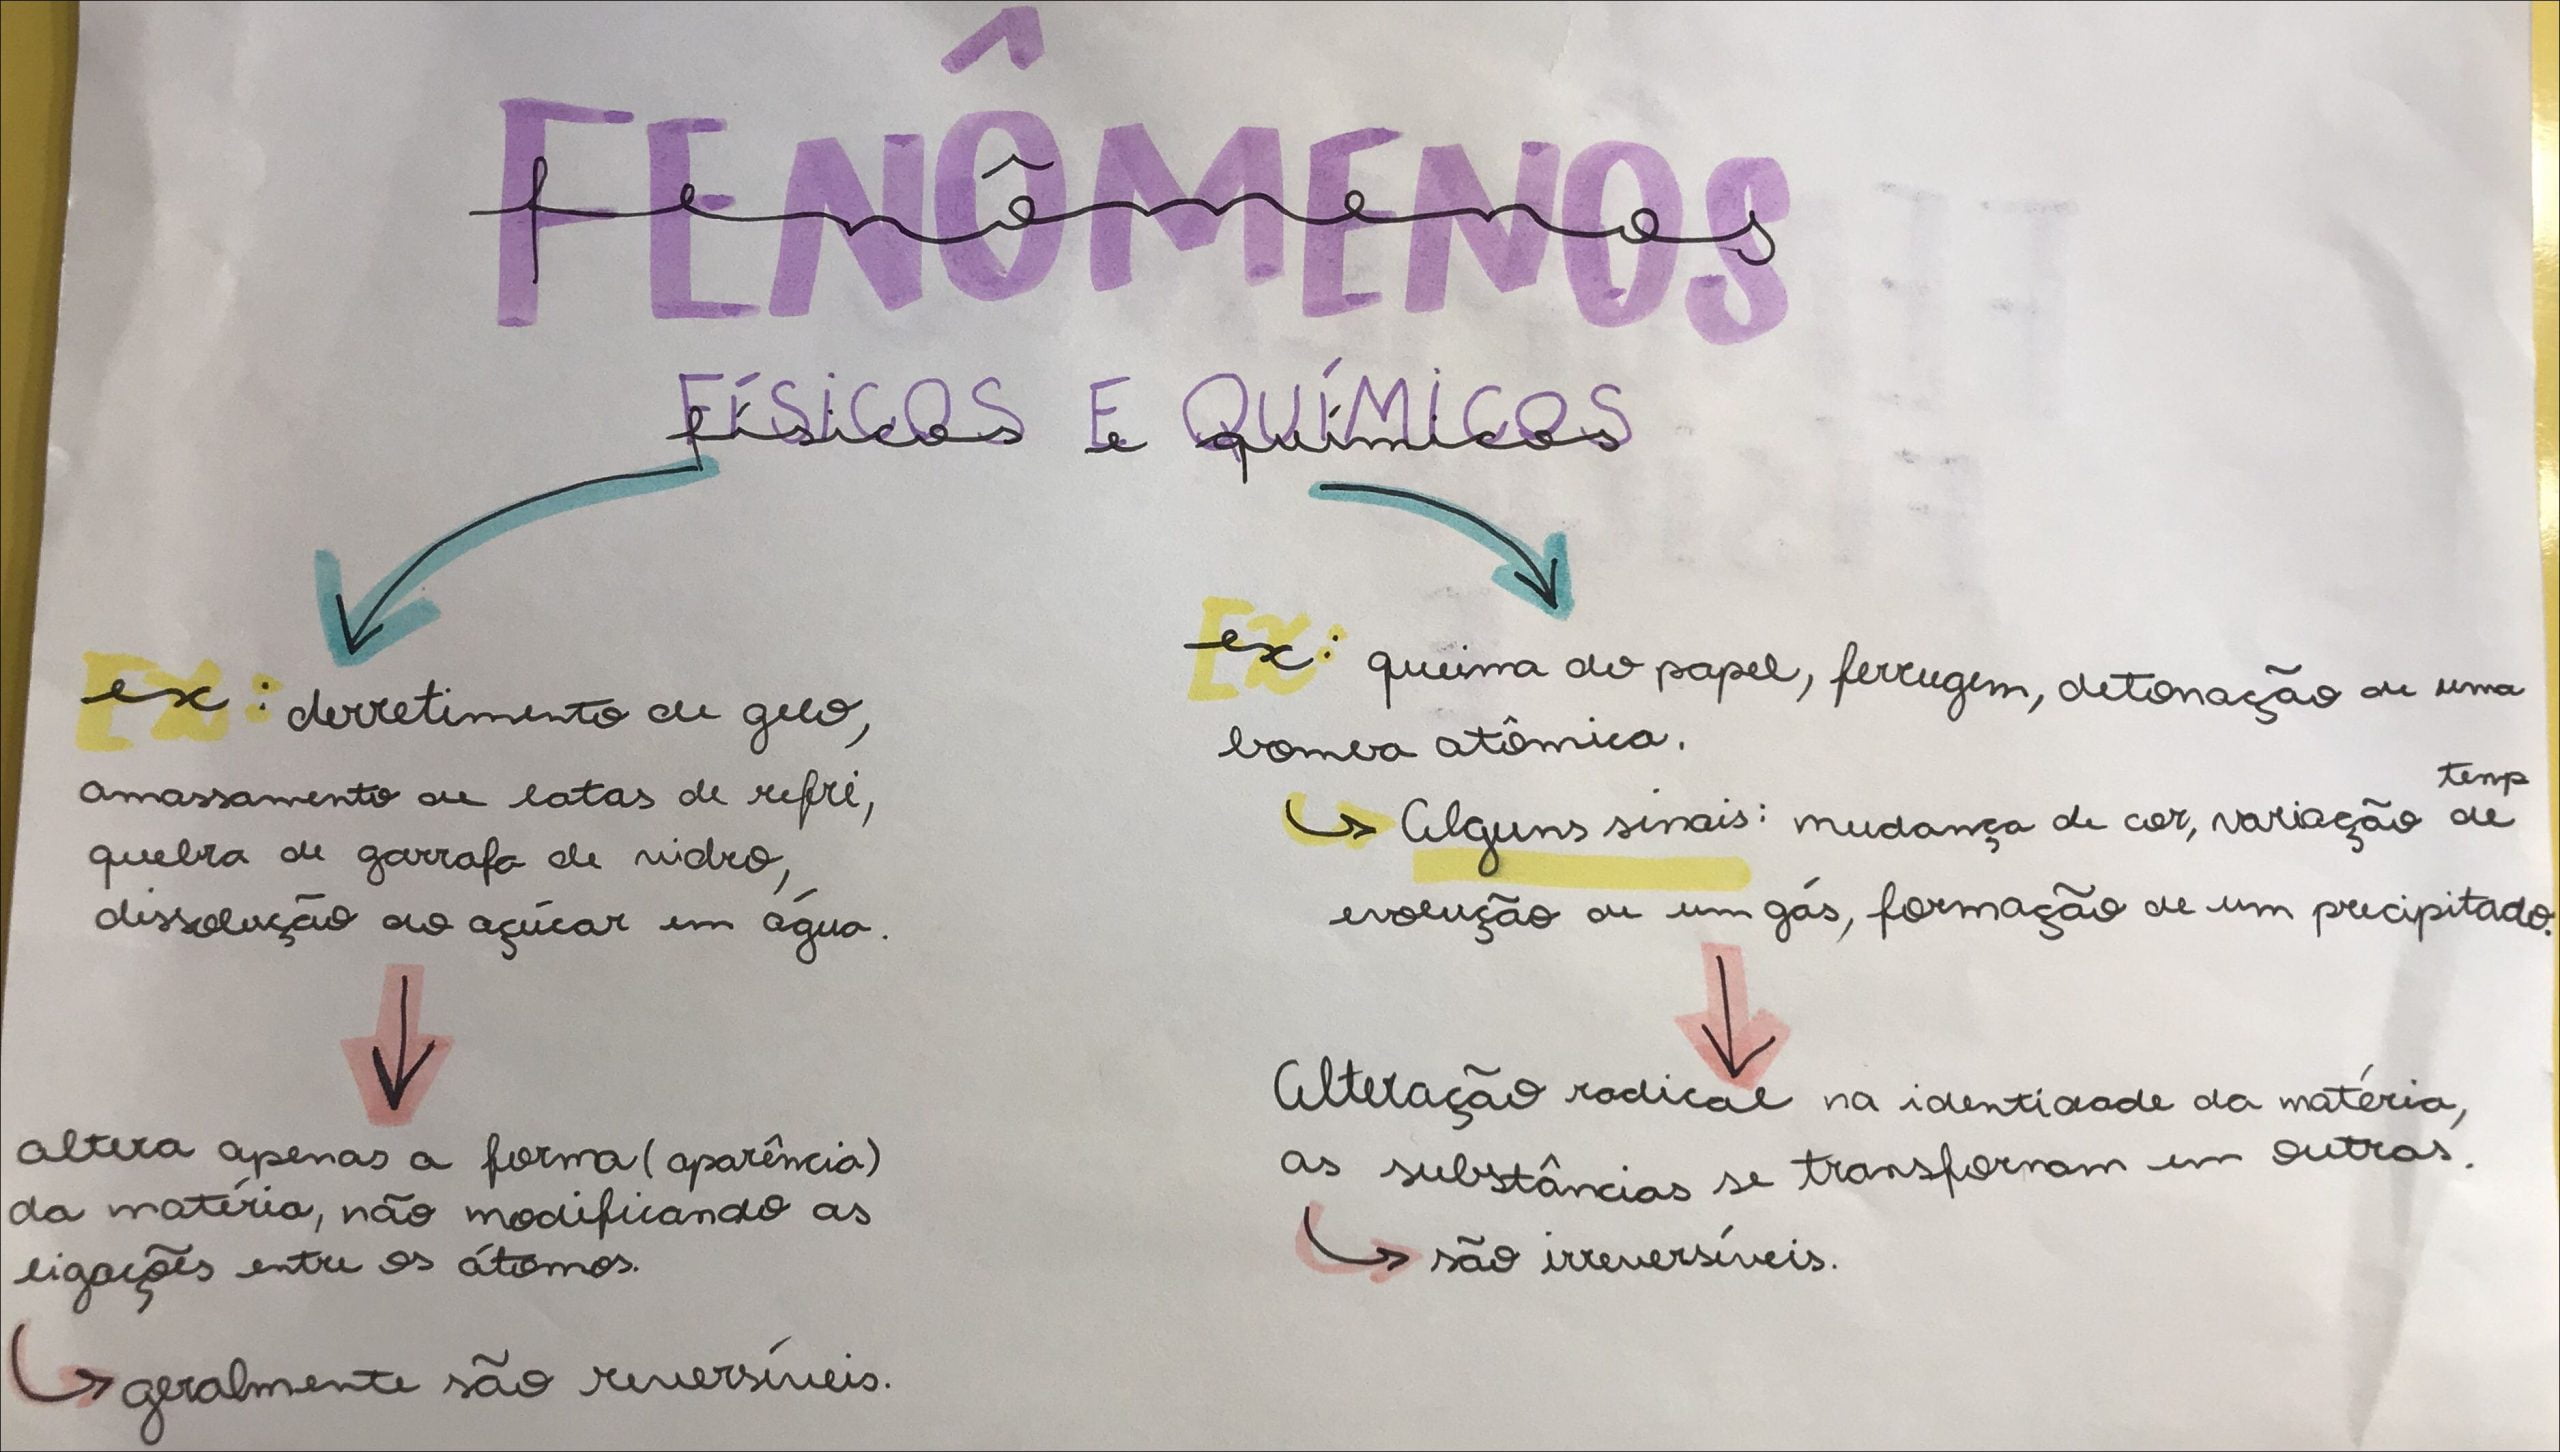 FENÔMENOS
fenômenos
FÍSICOS E QUÍMICOS
físicos e químicos
EX:
ex: derretimento de gelo,
amassamento de latas de refri,
quebra de garrafa de vidro,
dissolução do açúcar em água.
altera apenas a forma (aparência)
da matéria, não modificando as
ligações entre os átomos.
geralmente são reversíveis.
EX:
ex: queima do papel, ferrugem, detonação de uma
bomba atômica.
temp
Alguns sinais: mudança de cor, variação de
evolução de um gás, formação de um precipitado.
Alteração radical na identidade da matéria,
as substâncias se transformam em outras.
são irreversíveis.